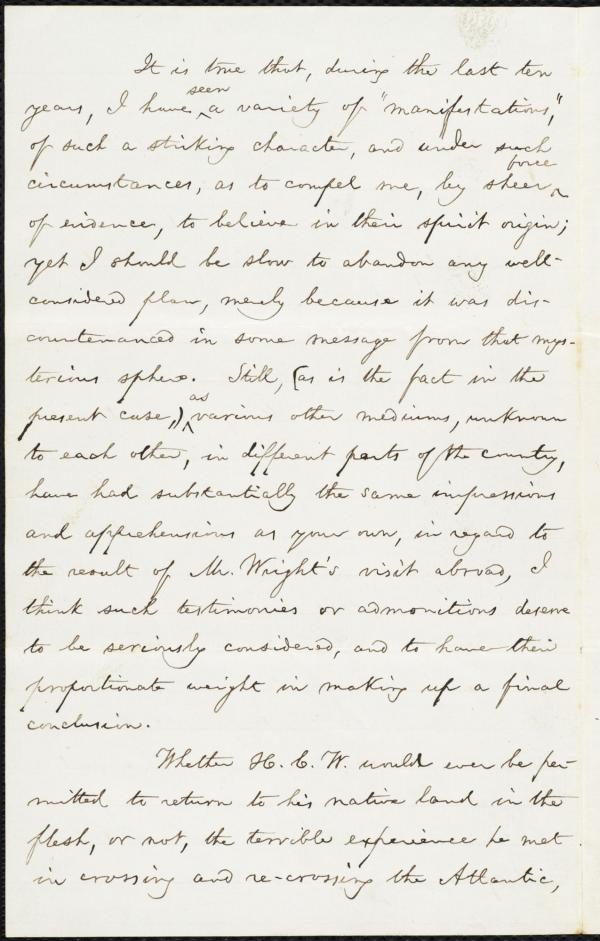 It is true that, during the last ten
years, I have seen a variety of "manifestations,"
of such a striking character, and under such
circumstances, as to compel me, by sheer force
of evidence, to believe in their spirit origin;
yet I should be slow to abandon any well-
considered plan, merely because it was dis-
countenanced in some message from that mys-
terious sphere. Still, (as is the fact in the
present case,) as various other mediums, unknown
to each other, in different parts of the country,
have had substantially the same impressions
and apprehensions as your own, in regard to
the result of Mr. Wright's visit abroad, I
think such testimonies or admonitions deserve
to be seriously considered, and to have their
proportionate weight in making up a final
conclusion.
Whether H. C. W. would ever be per-
mitted to return to his native land in the
flesh, or not, the terrible experience he met
in crossing and re-crossing the Atlantic,